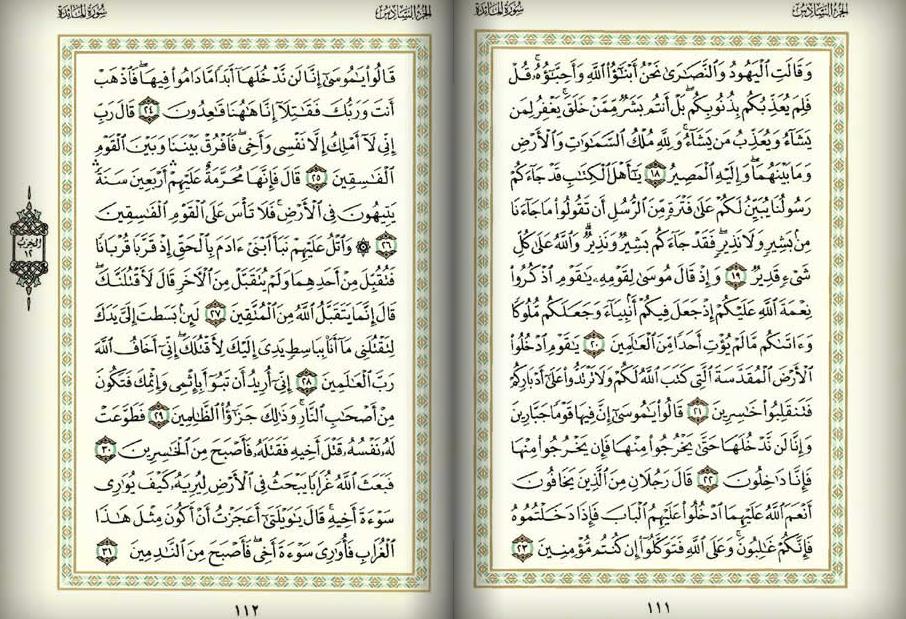 الجزء السادس سورة المائدة
وَقَالَتِ ٱلۡيَهُودُ وَٱلنَّصَٰرَىٰ نَحۡنُ أَبۡنَٰٓؤُاْ ٱللَّهِ وَأَحِبَّٰٓؤُهُۥۚ قُلۡ
فَلِمَ يُعَذِّبُكُم بِذُنُوبِكُمۖ بَلۡ أَنتُم بَشَرٞ مِّمَّنۡ خَلَقَۚ يَغۡفِرُ لِمَن
يَشَآءُ وَيُعَذِّبُ مَن يَشَآءُۚ وَلِلَّهِ مُلۡكُ ٱلسَّمَٰوَٰتِ وَٱلۡأَرۡضِ
وَمَا بَيۡنَهُمَاۖ وَإِلَيۡهِ ٱلۡمَصِيرُ ١٨ يَٰٓأَهۡلَ ٱلۡكِتَٰبِ قَدۡ جَآءَكُمۡ
رَسُولُنَا يُبَيِّنُ لَكُمۡ عَلَىٰ فَتۡرَةٖ مِّنَ ٱلرُّسُلِ أَن تَقُولُواْ مَا جَآءَنَا
مِنۢ بَشِيرٖ وَلَا نَذِيرٖۖ فَقَدۡ جَآءَكُم بَشِيرٞ وَنَذِيرٞۗ وَٱللَّهُ عَلَىٰ كُلِّ
شَيۡءٖ قَدِيرٞ ١٩ وَإِذۡ قَالَ مُوسَىٰ لِقَوۡمِهِۦ يَٰقَوۡمِ ٱذۡكُرُواْ
نِعۡمَةَ ٱللَّهِ عَلَيۡكُمۡ إِذۡ جَعَلَ فِيكُمۡ أَنۢبِيَآءَ وَجَعَلَكُم مُّلُوكٗا
وَءَاتَىٰكُم مَّا لَمۡ يُؤۡتِ أَحَدٗا مِّنَ ٱلۡعَٰلَمِينَ ٢٠ يَٰقَوۡمِ ٱدۡخُلُواْ
ٱلۡأَرۡضَ ٱلۡمُقَدَّسَةَ ٱلَّتِي كَتَبَ ٱللَّهُ لَكُمۡ وَلَا تَرۡتَدُّواْ عَلَىٰٓ أَدۡبَارِكُمۡ
فَتَنقَلِبُواْ خَٰسِرِينَ ٢١ قَالُواْ يَٰمُوسَىٰٓ إِنَّ فِيهَا قَوۡمٗا جَبَّارِينَ
وَإِنَّا لَن نَّدۡخُلَهَا حَتَّىٰ يَخۡرُجُواْ مِنۡهَا فَإِن يَخۡرُجُواْ مِنۡهَا
فَإِنَّا دَٰخِلُونَ ٢٢ قَالَ رَجُلَانِ مِنَ ٱلَّذِينَ يَخَافُونَ
أَنۡعَمَ ٱللَّهُ عَلَيۡهِمَا ٱدۡخُلُواْ عَلَيۡهِمُ ٱلۡبَابَ فَإِذَا دَخَلۡتُمُوهُ
فَإِنَّكُمۡ غَٰلِبُونَۚ وَعَلَى ٱللَّهِ فَتَوَكَّلُوٓاْ إِن كُنتُم مُّؤۡمِنِينَ ٢٣
١١١
الجزء السادس سورة المائدة
قَالُواْ يَٰمُوسَىٰٓ إِنَّا لَن نَّدۡخُلَهَآ أَبَدٗا مَّا دَامُواْ فِيهَا فَٱذۡهَبۡ
أَنتَ وَرَبُّكَ فَقَٰتِلَآ إِنَّا هَٰهُنَا قَٰعِدُونَ ٢٤ قَالَ رَبِّ
إِنِّي لَآ أَمۡلِكُ إِلَّا نَفۡسِي وَأَخِيۖ فَٱفۡرُقۡ بَيۡنَنَا وَبَيۡنَ ٱلۡقَوۡمِ
ٱلۡفَٰسِقِينَ ٢٥ قَالَ فَإِنَّهَا مُحَرَّمَةٌ عَلَيۡهِمۡۛ أَرۡبَعِينَ سَنَةٗۛ
يَتِيهُونَ فِي ٱلۡأَرۡضِۚ فَلَا تَأۡسَ عَلَى ٱلۡقَوۡمِ ٱلۡفَٰسِقِينَ
٢٦ ۞ وَٱتۡلُ عَلَيۡهِمۡ نَبَأَ ٱبۡنَيۡ ءَادَمَ بِٱلۡحَقِّ إِذۡ قَرَّبَا قُرۡبَانٗا
فَتُقُبِّلَ مِنۡ أَحَدِهِمَا وَلَمۡ يُتَقَبَّلۡ مِنَ ٱلۡأٓخَرِ قَالَ لَأَقۡتُلَنَّكَۖ
قَالَ إِنَّمَا يَتَقَبَّلُ ٱللَّهُ مِنَ ٱلۡمُتَّقِينَ ٢٧ لَئِنۢ بَسَطتَ إِلَيَّ يَدَكَ
لِتَقۡتُلَنِي مَآ أَنَا۠ بِبَاسِطٖ يَدِيَ إِلَيۡكَ لِأَقۡتُلَكَۖ إِنِّيٓ أَخَافُ ٱللَّهَ
رَبَّ ٱلۡعَٰلَمِينَ ٢٨ إِنِّيٓ أُرِيدُ أَن تَبُوٓأَ بِإِثۡمِي وَإِثۡمِكَ فَتَكُونَ
مِنۡ أَصۡحَٰبِ ٱلنَّارِۚ وَذَٰلِكَ جَزَٰٓؤُاْ ٱلظَّٰلِمِينَ ٢٩ فَطَوَّعَتۡ
لَهُۥ نَفۡسُهُۥ قَتۡلَ أَخِيهِ فَقَتَلَهُۥ فَأَصۡبَحَ مِنَ ٱلۡخَٰسِرِينَ ٣٠
فَبَعَثَ ٱللَّهُ غُرَابٗا يَبۡحَثُ فِي ٱلۡأَرۡضِ لِيُرِيَهُۥ كَيۡفَ يُوَٰرِي
سَوۡءَةَ أَخِيهِۚ قَالَ يَٰوَيۡلَتَىٰٓ أَعَجَزۡتُ أَنۡ أَكُونَ مِثۡلَ هَٰذَا
ٱلۡغُرَابِ فَأُوَٰرِيَ سَوۡءَةَ أَخِيۖ فَأَصۡبَحَ مِنَ ٱلنَّٰدِمِينَ ٣١
الحزب
١٢
١١٢